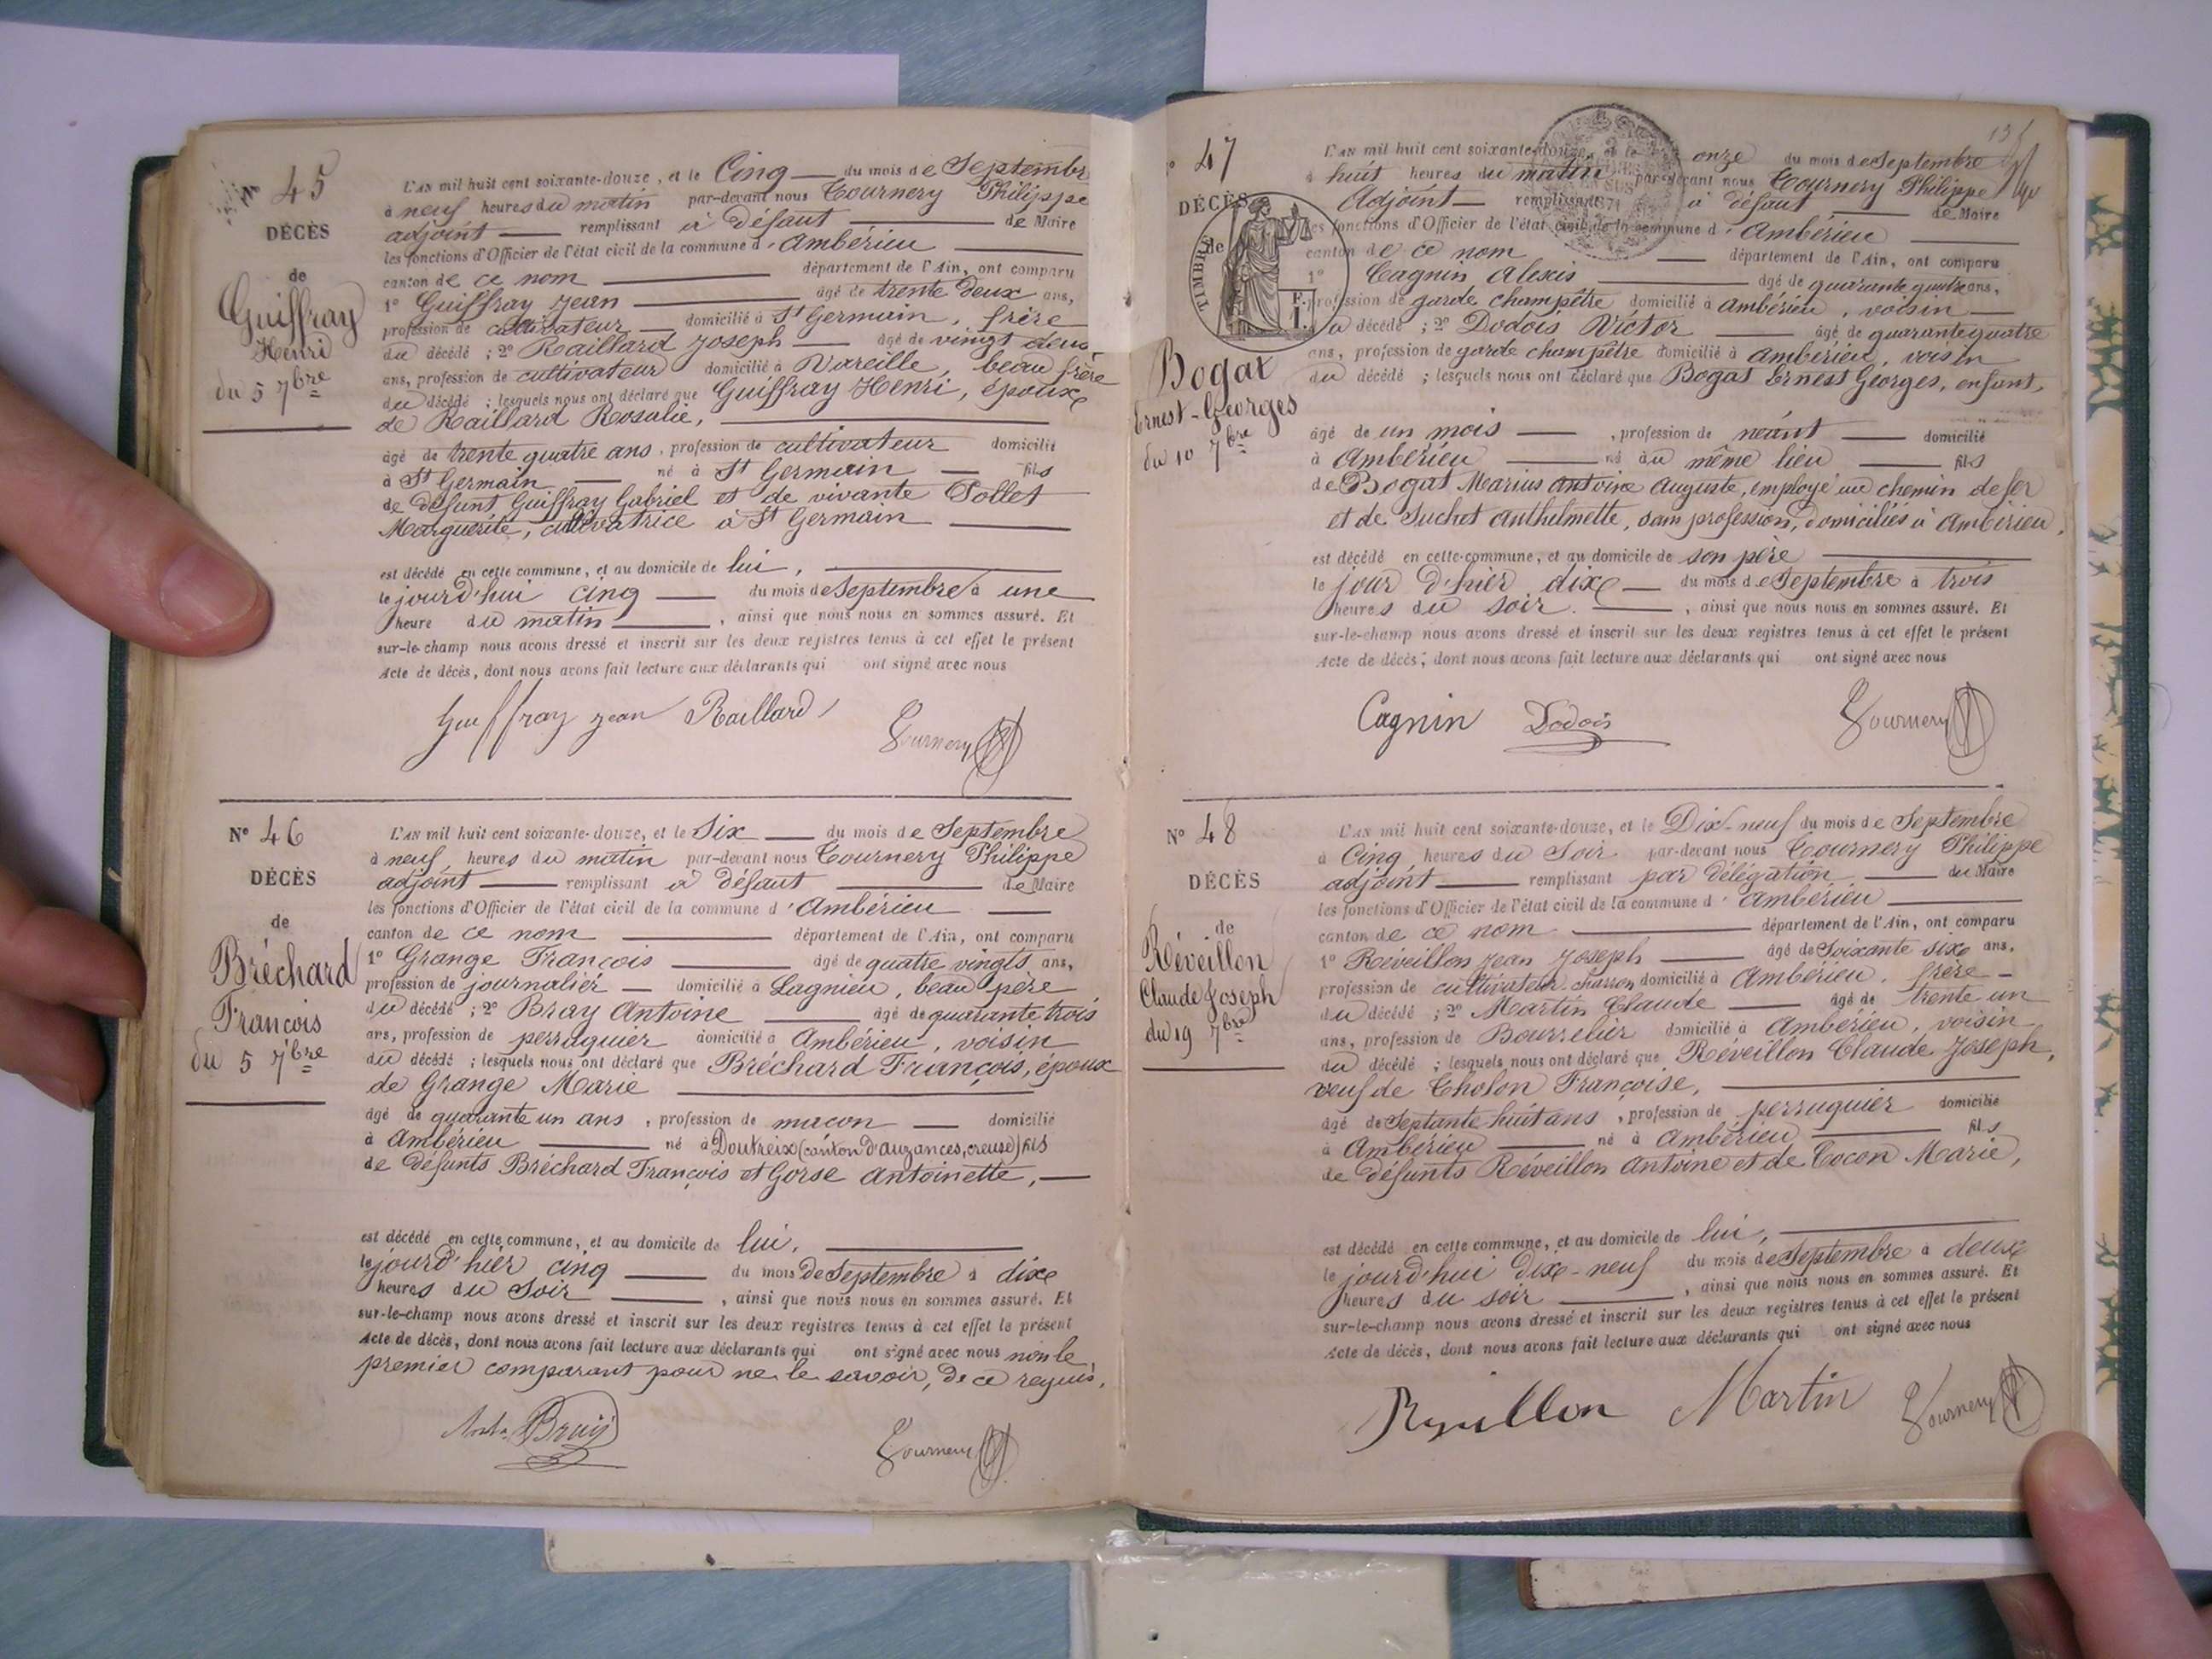 N° 45
DÉCÈS
de
Guiffray
Henri
du 5 7bre
L'AN mil huit cent soixante-douze, et le Cinq — du mois de Septembre
à neuf heures du matin par-devant nous Tournery Philippe
adjoint — remplissant à défaut — de Maire
les fonctions d'Officier de l'état civil de la commune d'Ambérieu —
canton de ce nom — département de l'Ain, ont comparu
1° Guiffray Jean — âgé de trente deux ans,
profession de cultivateur — domicilié à St Germain, frère
du décédé ; 2° Raillard Joseph — âgé de vingt deux
ans, profession de cultivateur domicilié à Vareille, beau frère
du décédé ; lesquels nous ont déclaré que Guiffray Henri, époux
de Raillard Rosalie, —
âgé de trente quatre ans, profession de cultivateur domicilié
à St Germain — né à St Germain — fils
de défunt Guiffray Gabriel et de vivante Tollet
Marguerite, cultivatrice à St Germain —
est décédé en cette commune, et au domicile de lui, —
le jourd'hui cinq — du mois de Septembre à une
heure du matin —, ainsi que nous nous en sommes assuré. Et
sur-le-champ nous avons dressé et inscrit sur les deux registres tenus à cet effet le présent
Acte de décès, dont nous avons fait lecture aux déclarants qui ont signé avec nous
Guiffray Jean Raillard Tournery
N° 46
DÉCÈS
de
Bréchard
François
du 5 7bre
L'AN mil huit cent soixante-douze, et le Six — du mois de Septembre
à neuf heures du matin par-devant nous Tournery Philippe
adjoint — remplissant à défaut — de Maire
les fonctions d'Officier de l'état civil de la commune d'Ambérieu —
canton de ce nom — département de l'Ain, ont comparu
1° Grange François — âgé de quatre vingts ans,
profession de journalier — domicilié à Lagnieu, beau père
du décédé ; 2° Bray Antoine — âgé de quarante trois
ans, profession de perruquier domicilié à Ambérieu, voisin
du décédé ; lesquels nous ont déclaré que Bréchard François, époux
de Grange Marie —
âgé de quarante un ans, profession de maçon — domicilié
à Ambérieu — né à Doutreix (canton d'auzances, creuse) fils
de défunts Bréchard François et Gorse Antoinette, —
est décédé en cette commune, et au domicile de lui, —
le jourd'hier cinq — du mois de Septembre à dixe
heures du Soir —, ainsi que nous nous en sommes assuré. Et
sur-le-champ nous avons dressé et inscrit sur les deux registres tenus à cet effet le présent
Acte de décès, dont nous avons fait lecture aux déclarants qui ont signé avec nous non le
premier comparant pour ne le savoir, de ce requis.
Tournery
N° 47
DÉCÈS
de
TIMBRE
F.
1.
Bogat
Ernest-Georges
du 10 7bre
L'AN mil huit cent soixante-douze, et le onze du mois de Septembre
à huit heures du matin par-devant nous Tournery Philippe
Adjoint — remplissant à défaut — de Maire
les fonctions d'Officier de l'état civil de la commune d'Ambérieu —
canton de ce nom — département de l'Ain, ont comparu
1° Cagnin Alexis — âgé de quarante quatre ans,
profession de garde champêtre domicilié à Ambérieu, voisin —
du décédé ; 2° Dodois Victor — âgé de quarante quatre
ans, profession de garde champêtre domicilié à Ambérieu, voisin
du décédé ; lesquels nous ont déclaré que Bogat Ernest Georges, enfant,
âgé de un mois —, profession de néant — domicilié
à Ambérieu — né au même lieu — fils
de Bogat Marius Antoine Auguste, employé au chemin de fer
et de Suchet Anthelmette, sans profession, domiciliés à Ambérieu,
est décédé en cette commune, et au domicile de son père —
le jour d'hier dixe — du mois de Septembre à trois
heures du soir. —, ainsi que nous nous en sommes assuré. Et
sur-le-champ nous avons dressé et inscrit sur les deux registres tenus à cet effet le présent
Acte de décès, dont nous avons fait lecture aux déclarants qui ont signé avec nous
Cagnin Dodois Tournery
N° 48
DÉCÈS
de
Réveillon
Claude Joseph
du 19 7bre
L'AN mil huit cent soixante-douze, et le Dix-neuf du mois de Septembre
à Cinq heures du Soir par-devant nous Tournery Philippe
adjoint — remplissant par délégation — du Maire
les fonctions d'Officier de l'état civil de la commune d'Ambérieu —
canton de ce nom — département de l'Ain, ont comparu
1° Réveillon Jean Joseph — âgé de Soixante sixe ans,
profession de cultivateur-charron domicilié à Ambérieu, frère —
du décédé ; 2° Martin Claude — âgé de trente un
ans, profession de Bourrelier domicilié à Ambérieu, voisin
du décédé ; lesquels nous ont déclaré que Réveillon Claude Joseph,
veuf de Tholon Françoise, —
âgé de Septante huit ans, profession de perruquier domicilié
à Ambérieu — né à Ambérieu — fils
de défunts Réveillon Antoine et de Cocon Marie,
est décédé en cette commune, et au domicile de lui, —
le jourd'hui dixe-neuf du mois de Septembre à deuxe
heures du soir —, ainsi que nous nous en sommes assuré. Et
sur-le-champ nous avons dressé et inscrit sur les deux registres tenus à cet effet le présent
Acte de décès, dont nous avons fait lecture aux déclarants qui ont signé avec nous
Martin Tournery